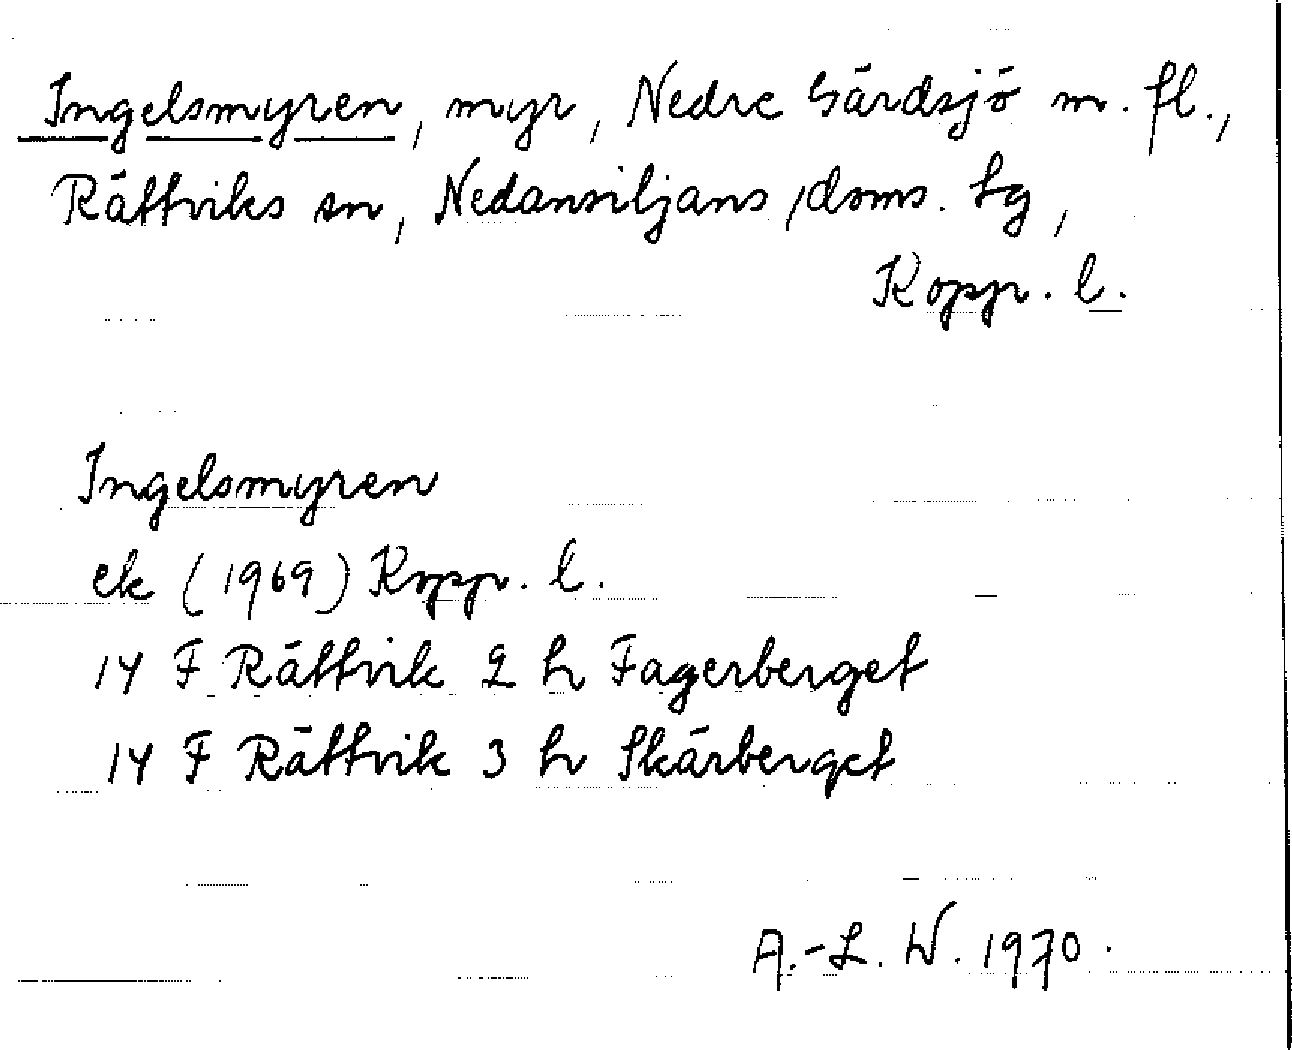 Ingelsmyren, myr, Nedre Gärdsjö m. fl.,
Rättviks sn, Nedansiljans doms. tg,
Kopp. l.
Ingelsmyren
ek (1969) Kopp. l.
14 F Rättvik 2 h Fagerberget
14 F Rättvik 3 h Skärberget
A.-L. W. 1970.